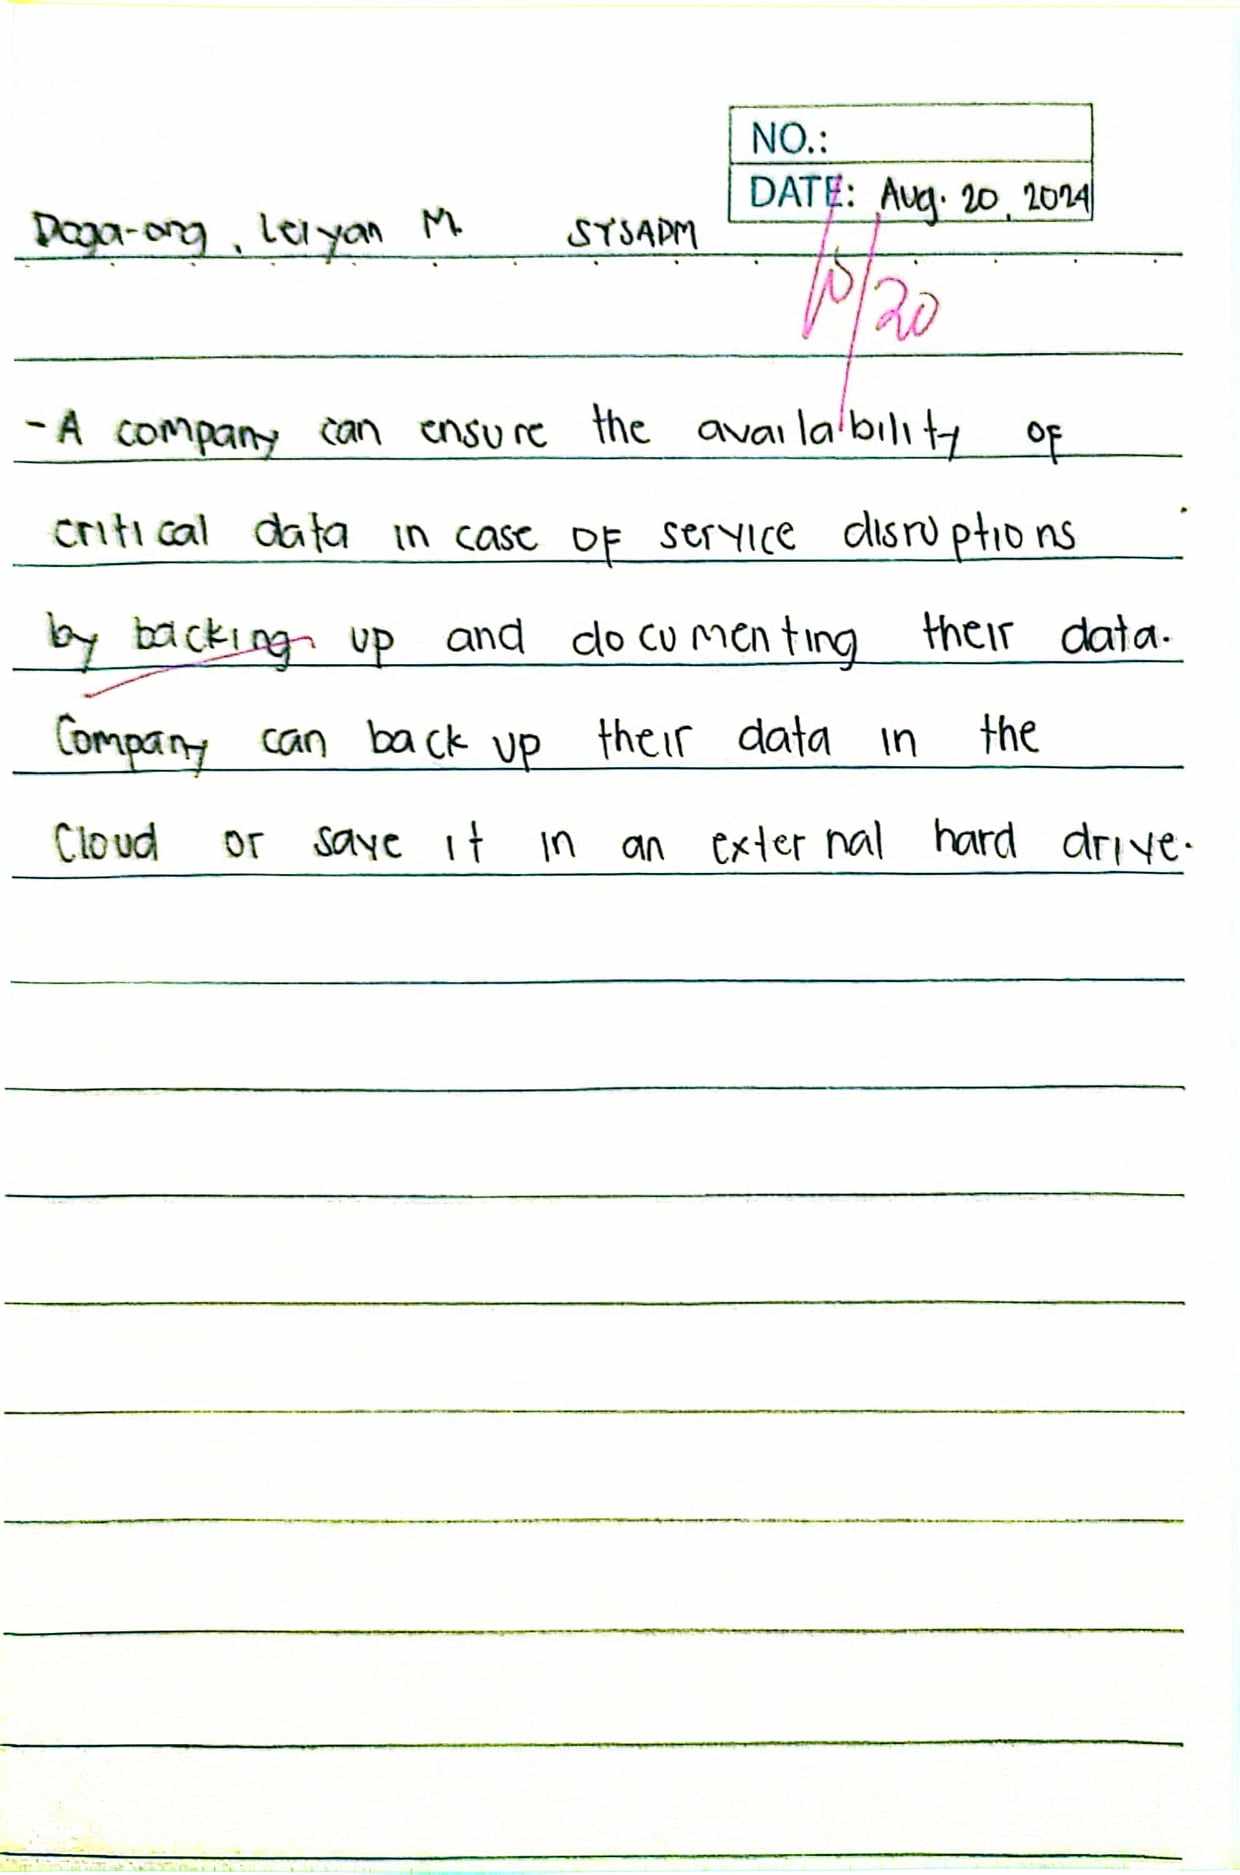 NO.:
DATE: Aug. 20, 2024
Doga-ong, Leiyan M. SYSADM
/20
- A company can ensure the availability of
critical data in case of service disruptions
by backing up and documenting their data.
Company can back up their data in the
Cloud or save it in an external hard drive.